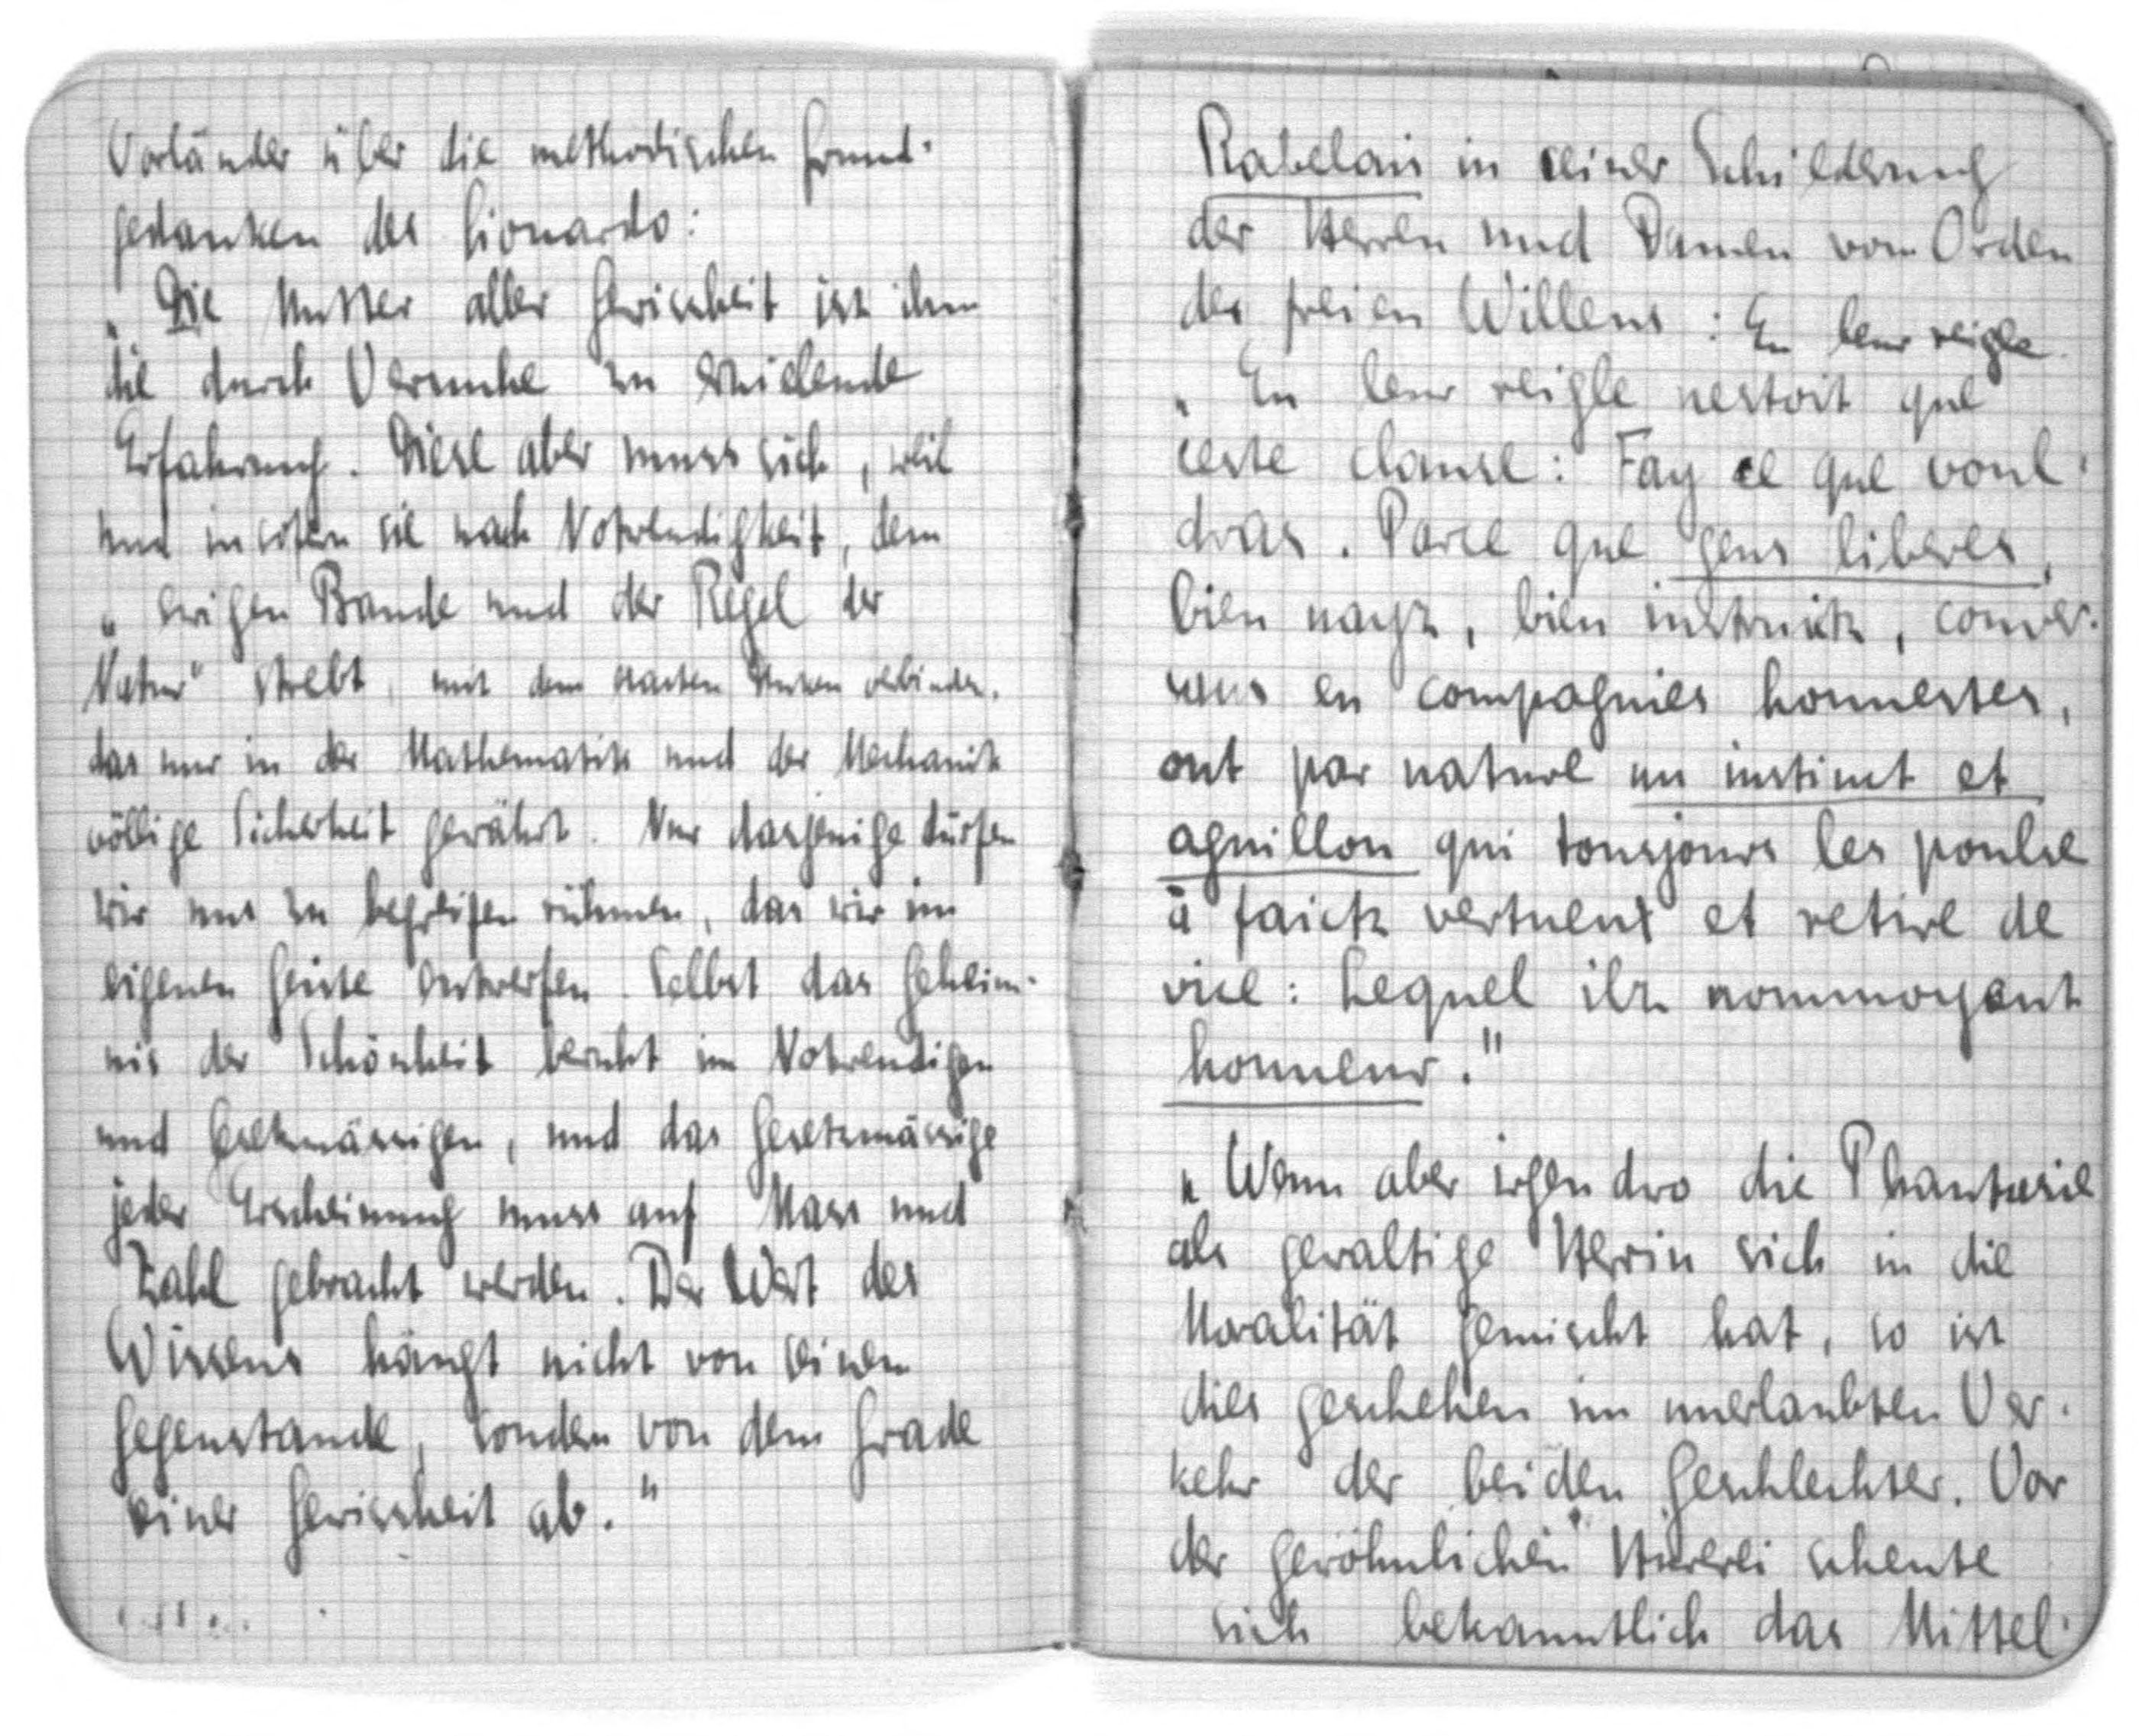 Vorländer über die methodischen Grund-
gedanken des Lionardo:
„Die Mutter aller Gewissheit ist ihm
die durch Versuche zu erzielende
Erfahrung. Diese aber muss sich, weil
und insofern sie nach Notwendigkeit, dem
„ewigen Bande und der Regel der
Natur" strebt, mit dem verbinden,
das nur in der Mathematik und der Mechanik
völlige Sicherheit gewährt. Nur dasjenige dürfen
wir uns zu begreifen rühmen, das wir im
eigenen Geiste entwerfen. Selbst das Geheim-
nis der Schönheit beruht im Notwendigen
und Gesetzmässigen, und das Gesetzmässige
jeder Erscheinung muss auf Mass und
Zahl gebracht werden. Der Wert des
Wissens hängt nicht von seinem
Gegenstande, sondern von dem Grade
seiner Gewissheit ab."
Rabelais in seiner Schilderung
der Herren und Damen vom Orden
des freien Willens: En leur reigle
„En leur reigle nestoit que
ceste clause: Fay ce que voul-
dras. Parce que gens liberes,
bien nayz, bien instruictz, conver-
sans en compagnies honnestes,
ont par nature un instinct et
aguillon qui tousjours les poulse
à faictz vertueux et retire de
vice: Lequel ilz nommoyent
honneur."
„Wenn aber irgendwo die Phantasie
als gewaltige Herrin sich in die
Moralität gemischt hat, so ist
dies geschehen im unerlaubten Ver-
kehr der beiden Geschlechter. Vor
der gewöhnlichen Hurerei scheute
sich bekanntlich das Mittel-